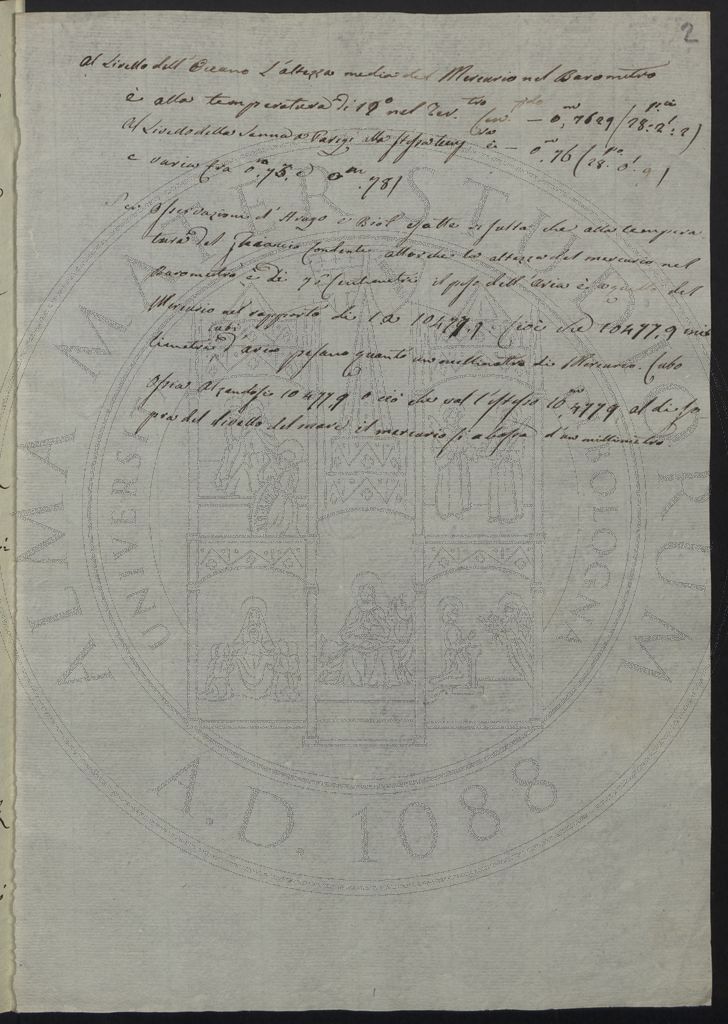 2
Al Livello dell' Oceano L'altezza media del Mercurio nel Barometro
è alla temperatura di 12° nel Ter.tro Cen.do — 0,m7629 (28:P.ci 2l:2)
Al Livello della Senna a Parigi alla stessa temp.ra è — 0,m76 (28.Po 0l.9)
e varia fra 0.m75. e 0m.781
Per osservazioni d'Arago e Biot esatte risulta che alla tempera-
tura del Ghiaccio fondente allorché la altezza del mercurio nel
Barometro è di 76 Centimetri il peso dell'aria è a quello del
Mercurio nel rapporto di 1 a 10477.9: Cioè che 10477.9 milli-
limetri cubi d'aria pesano quanto un millimetro di Mercurio. Cubo
Ossia Alzandosi 10477.9 o ciò che val l'istesso 10m4779 al di so-
pra del livello del mare il mercurio si abbassa d'un millimetro
ALMA MATER STUDIORUM
UNIVERSITÀ DI BOLOGNA
A.D. 1088